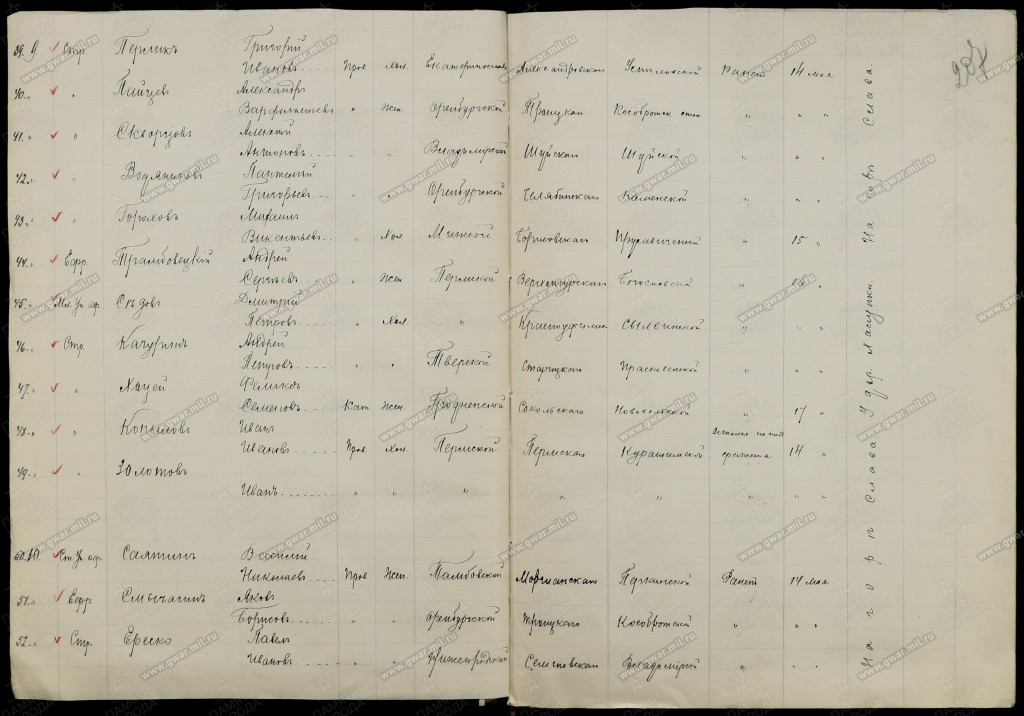 39. 9. Стр. Перликъ Григорій
Ивановъ Прав Хол. Екатеринослав Александровская Ранен 14 мая
40. " Пайцевъ Александръ
Варфоломеевъ " Жен. Оренбургской Троицкая Кособродск. стан " " "
41. " Скворцовъ Алексѣй
Антоновъ " " Владимірской Шуйская Шуйской " " "
42. " Водяниковъ Пантелей
Григорьевъ " " Оренбургской Челябинская Каменской " " "
43. " Гороховъ Михаил
Викентьевъ " Хол Минской Борисовская " 15 "
44. Ефр. Трамбовецкій Андрей
Сергѣевъ " Жен Пермской Верхотурская Богословск " 16 "
45. Мл. Ун. оф. Сѣдовъ Дмитрій
Петровъ " Хол " Красноуфимск Сылвинской " " "
46. Стр. Качуринъ Андрей
Петровъ " " Тверской Старицкая " " "
47. " Феликсъ
Семеновъ Кат Жен Гродненской Сокольскаго Нововольской " 17 "
48. " Копыловъ Иванъ
Ивановъ Прав Хол. Пермской Пермская Курашимской сраженія 14 "
49. " Золотовъ
Иванъ " " " " " " " "
50. 10. Ст. Ун. офр. Саяпинъ Василій
Николаевъ Прав Жен. Тамбовской Моршанская Ранен 14 мая
51. Ефр. Смычагинъ Яковъ
Борисовъ " " Оренбургской Троицкаго Кособродской " " "
52. Стр. Ереско Павелъ
Ивановъ " " Нижегородской Семеновская Владимірской " " "
На горѣ Слава У дер. Ласупки. На горѣ Слава.
207
www.gwar.mil.ru
ПАМЯТЬ НАРОДА